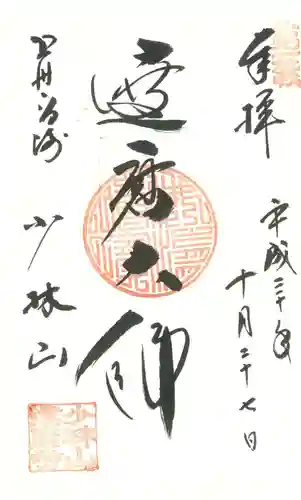 奉拝
平成三十年
十月二十七日
達磨大師
上州高崎
少林山